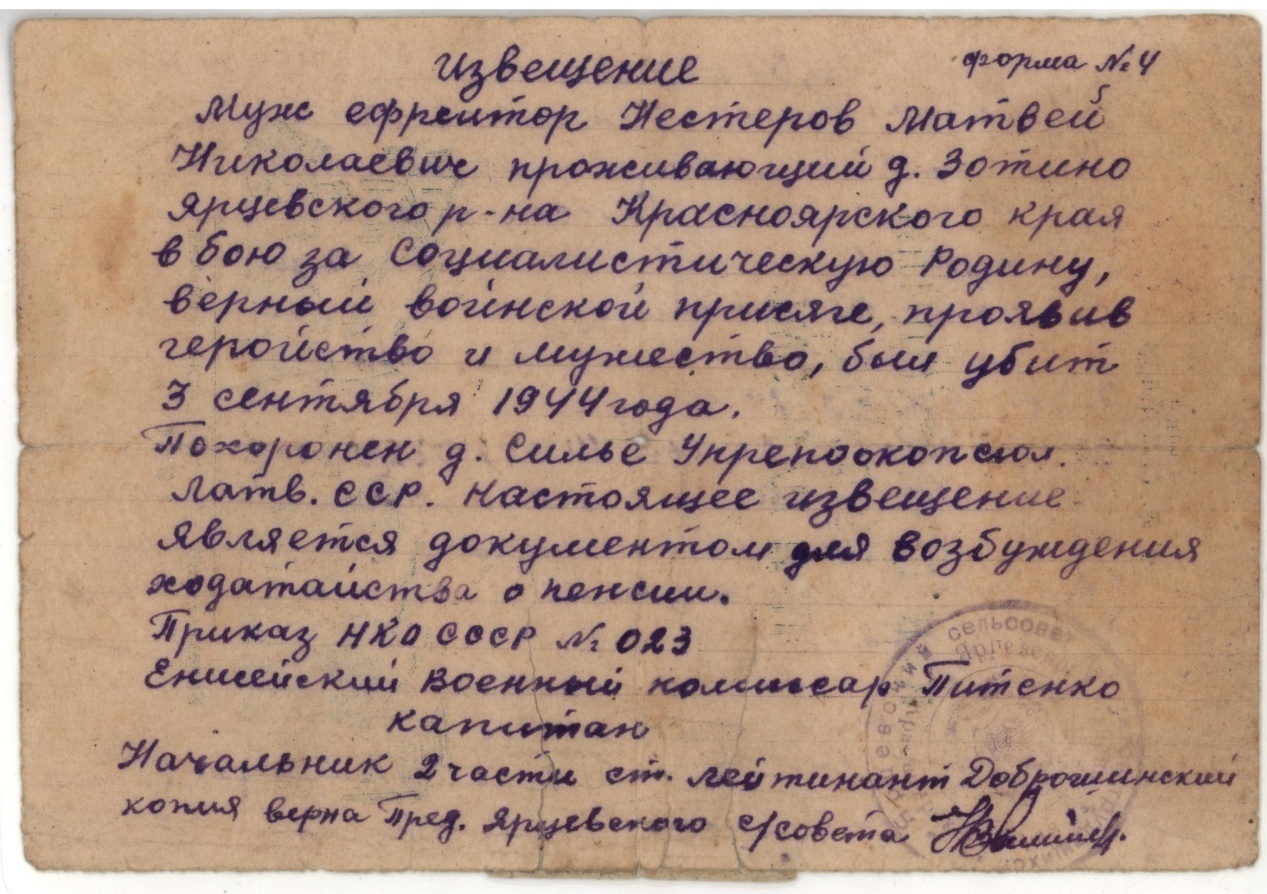 извещение форма № 4
Муж ефрейтор Нестеров Матвей
Николаевич проживающий д. Зотино
Ярцевского р-на Красноярского края
в бою за Социалистическую Родину,
верный воинской присяге, проявив
геройство и мужество, был убит
3 сентября 1944 года.
Похоронен д. Силье
Латв. ССР. Настоящее извещение
является документом для возбуждения
ходатайства о пенсии.
Приказ НКО СССР № 023
Енисейский Военный комиссар Питенко
капитан
Начальник 2 части ст. лейтинант Доброшинский
копия верна Пред. Ярцевского с/совета
сельсовет